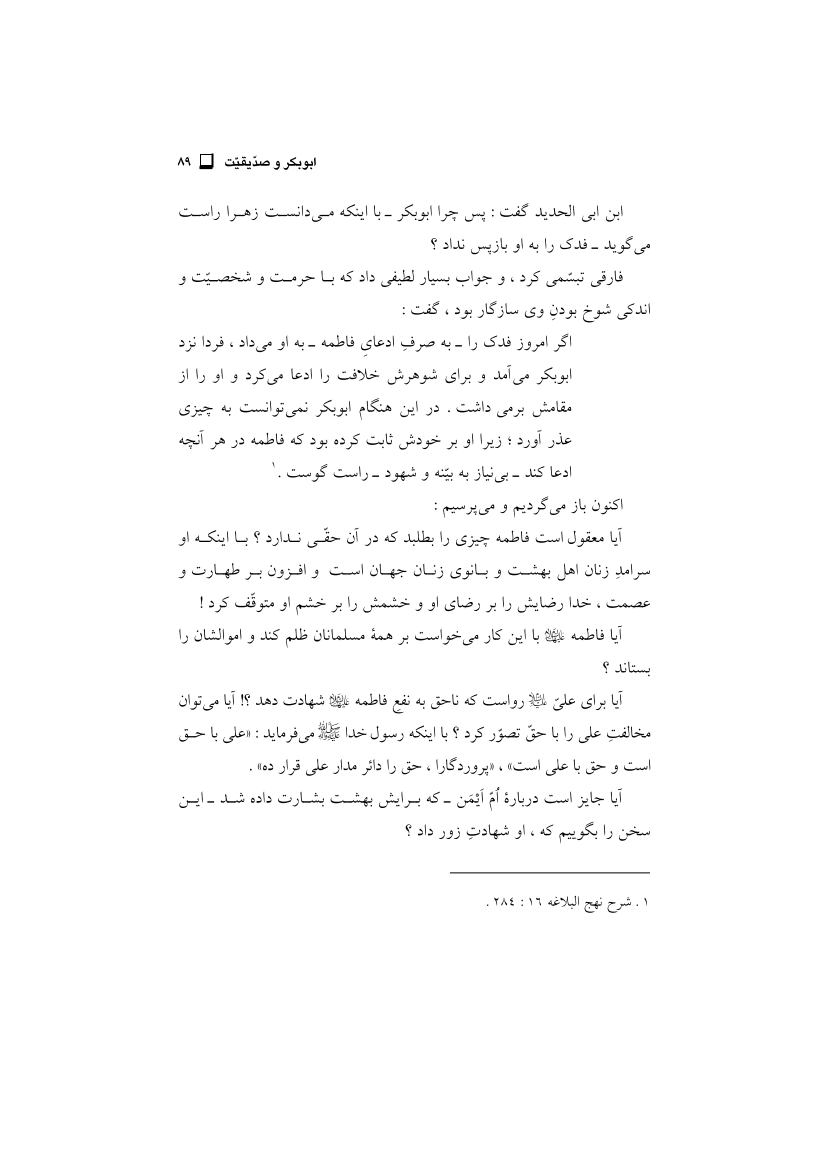 ابوبکر و صدّیقیّت ❏ ۸۹
ابن ابی الحدید گفت : پس چرا ابوبکر ـ با اینکه می‌دانست زهرا راست
می‌گوید ـ فدک را به او بازپس نداد ؟
فارقی تبسّمی کرد ، و جواب بسیار لطیفی داد که با حرمت و شخصیّت و
اندکی شوخ بودنِ وی سازگار بود ، گفت :
اگر امروز فدک را ـ به صرفِ ادعایِ فاطمه ـ به او می‌داد ، فردا نزد
ابوبکر می‌آمد و برای شوهرش خلافت را ادعا می‌کرد و او را از
مقامش برمی داشت . در این هنگام ابوبکر نمی‌توانست به چیزی
عذر آورد ؛ زیرا او بر خودش ثابت کرده بود که فاطمه در هر آنچه
ادعا کند ـ بی‌نیاز به بیّنه و شهود ـ راست گوست .۱
اکنون باز می‌گردیم و می‌پرسیم :
آیا معقول است فاطمه چیزی را بطلبد که در آن حقّی ندارد ؟ با اینکه او
سرامدِ زنان اهل بهشت و بانوی زنان جهان است و افزون بر طهارت و
عصمت ، خدا رضایش را بر رضای او و خشمش را بر خشم او متوقّف کرد !
آیا فاطمه علیها السلام با این کار می‌خواست بر همهٔ مسلمانان ظلم کند و اموالشان را
بستاند ؟
آیا برای علیّ علیه السلام رواست که ناحق به نفعِ فاطمه علیها السلام شهادت دهد ؟! آیا می‌توان
مخالفتِ علی را با حقّ تصوّر کرد ؟ با اینکه رسول خدا ﷺ می‌فرماید : «علی با حق
است و حق با علی است» ، «پروردگارا ، حق را دائر مدار علی قرار ده» .
آیا جایز است دربارهٔ اُمّ اَیْمَن ـ که برایش بهشت بشارت داده شد ـ این
سخن را بگوییم که ، او شهادتِ زور داد ؟
۱ . شرح نهج البلاغه ۱۶ : ۲۸٤ .